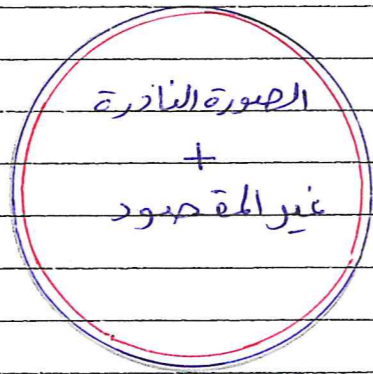 الصورة النادرة
+
غير المقصود